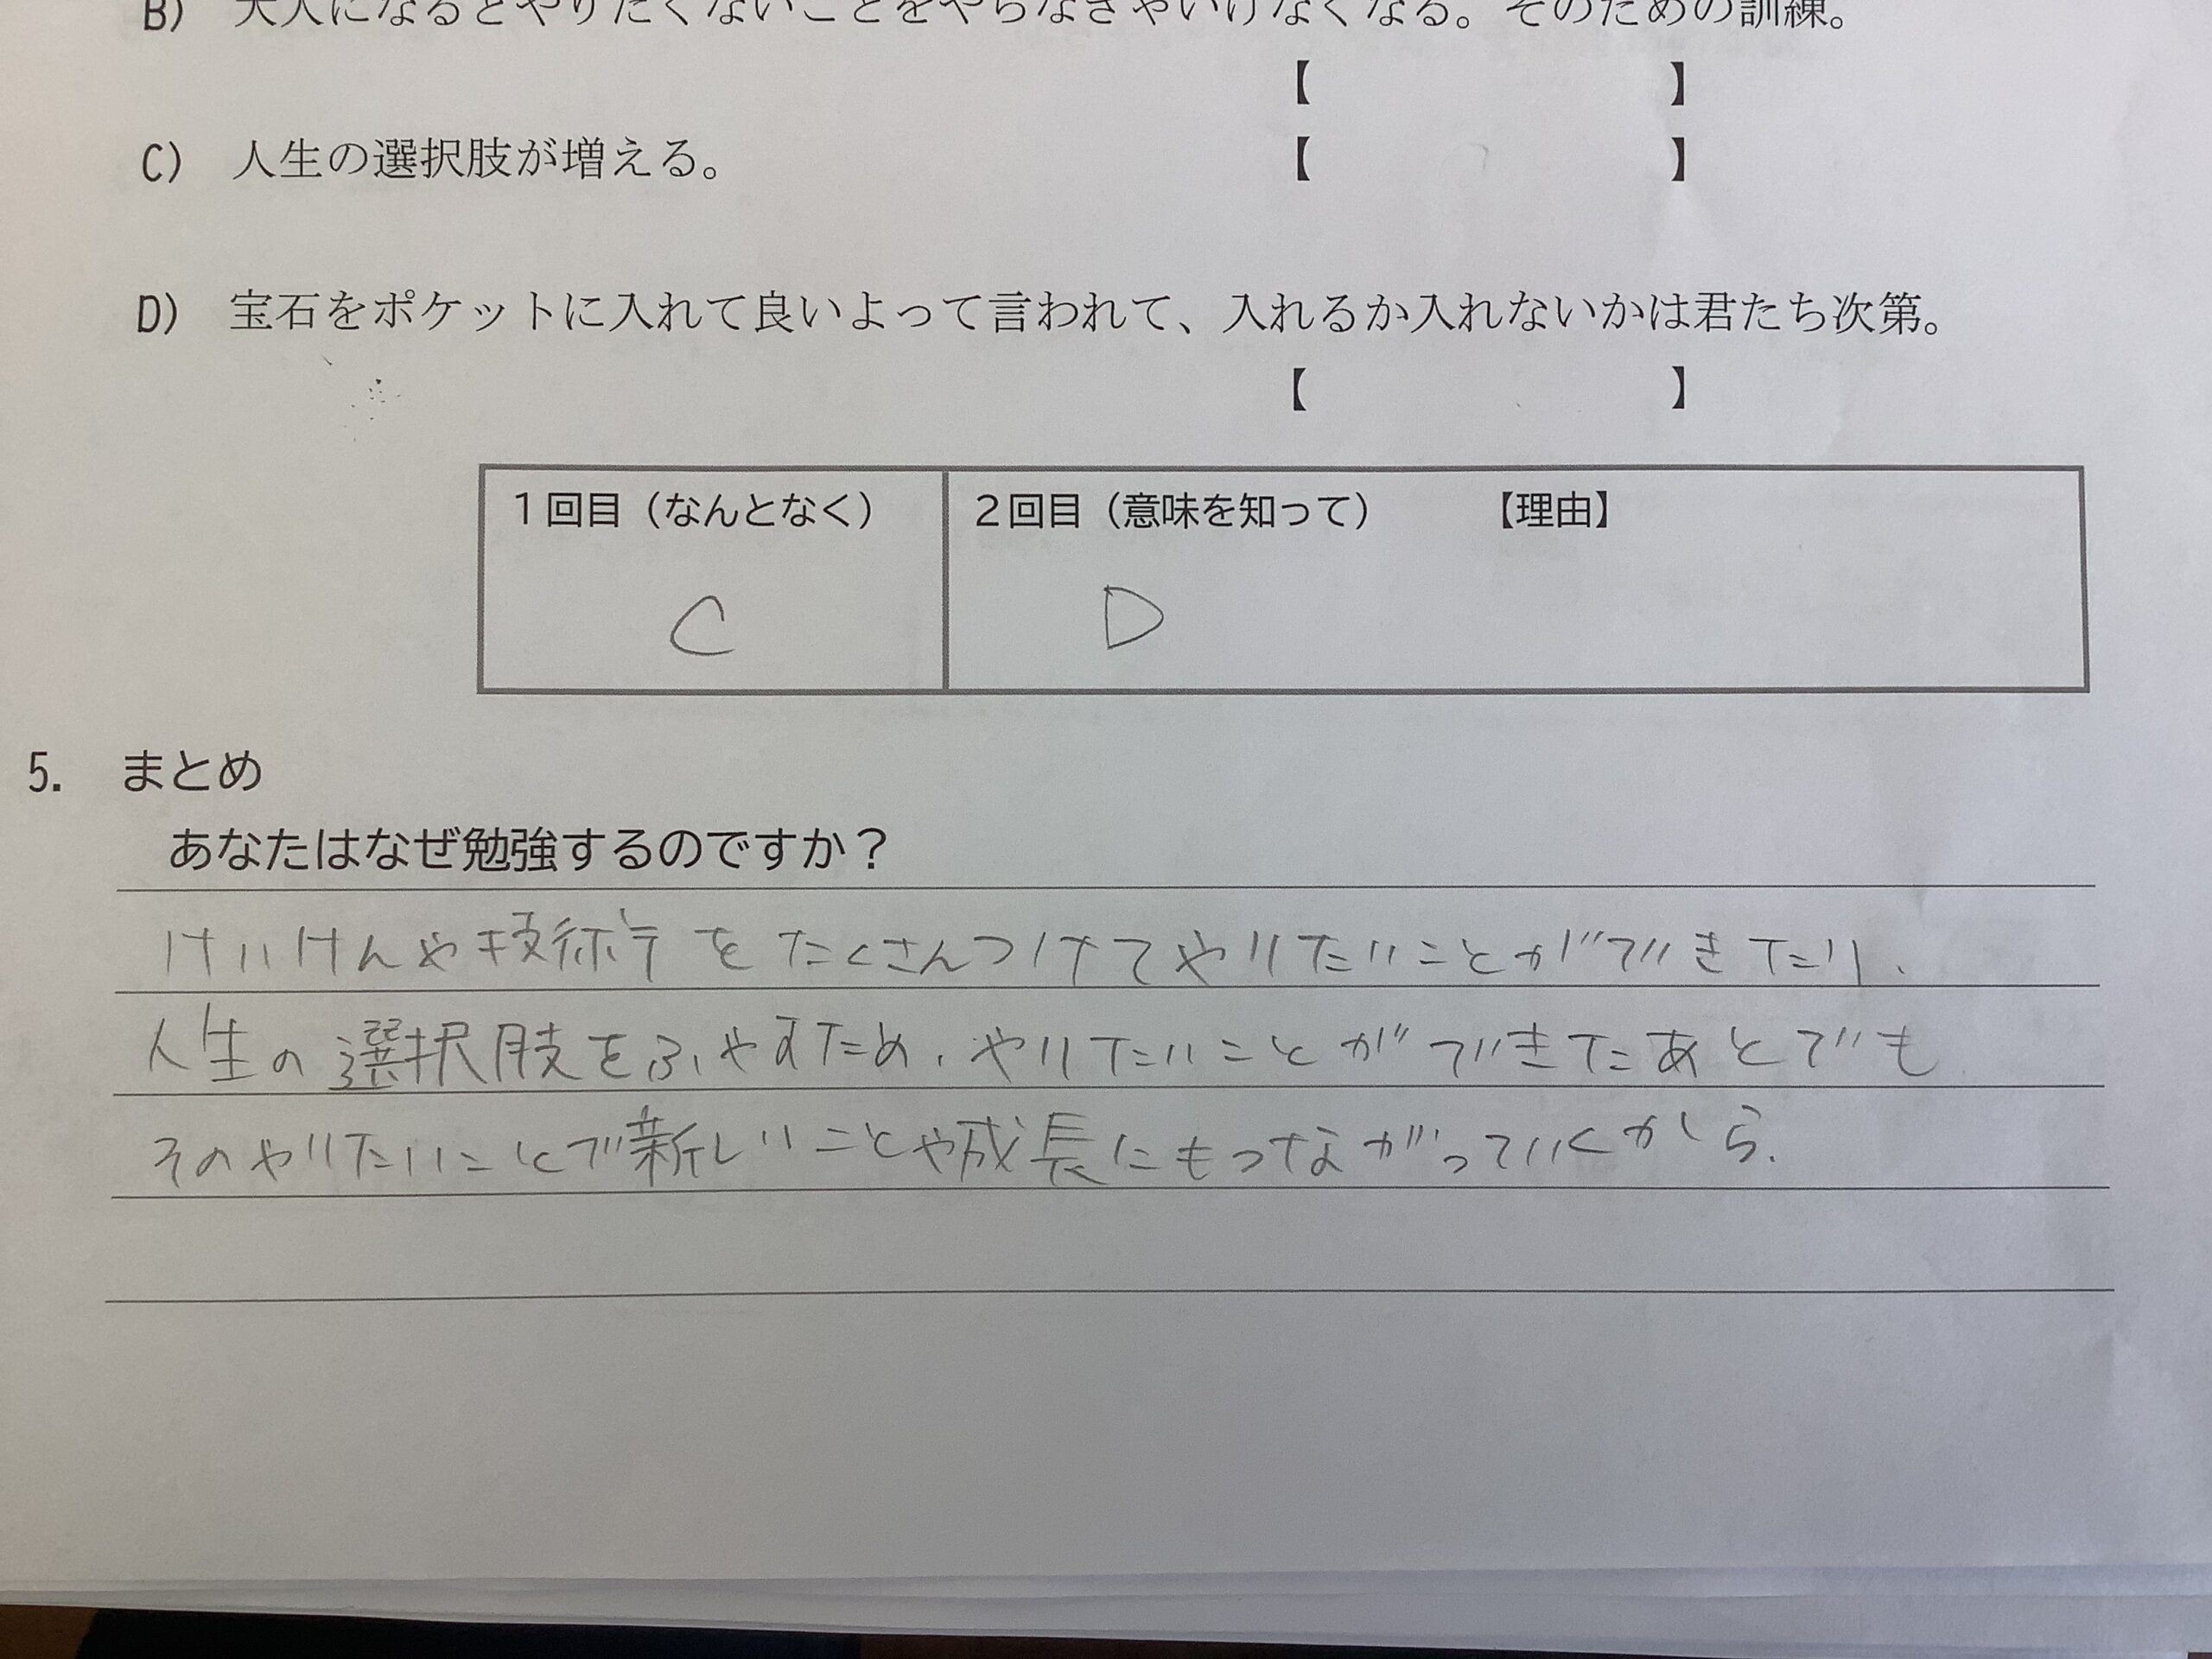 B) 大人になるとやりたくないことをやらなきゃいけなくなる。そのための訓練。
【 】
C) 人生の選択肢が増える。 【 】
D) 宝石をポケットに入れて良いよって言われて、入れるか入れないかは君たち次第。
【 】
1回目（なんとなく） 2回目（意味を知って） 【理由】
C D
5. まとめ
あなたはなぜ勉強するのですか？
けいけんや技術をたくさんつけてやりたいことができたり、
人生の選択肢をふやすため、やりたいことができたあとでも
そのやりたいことで新しいことや成長にもつながっていくから。